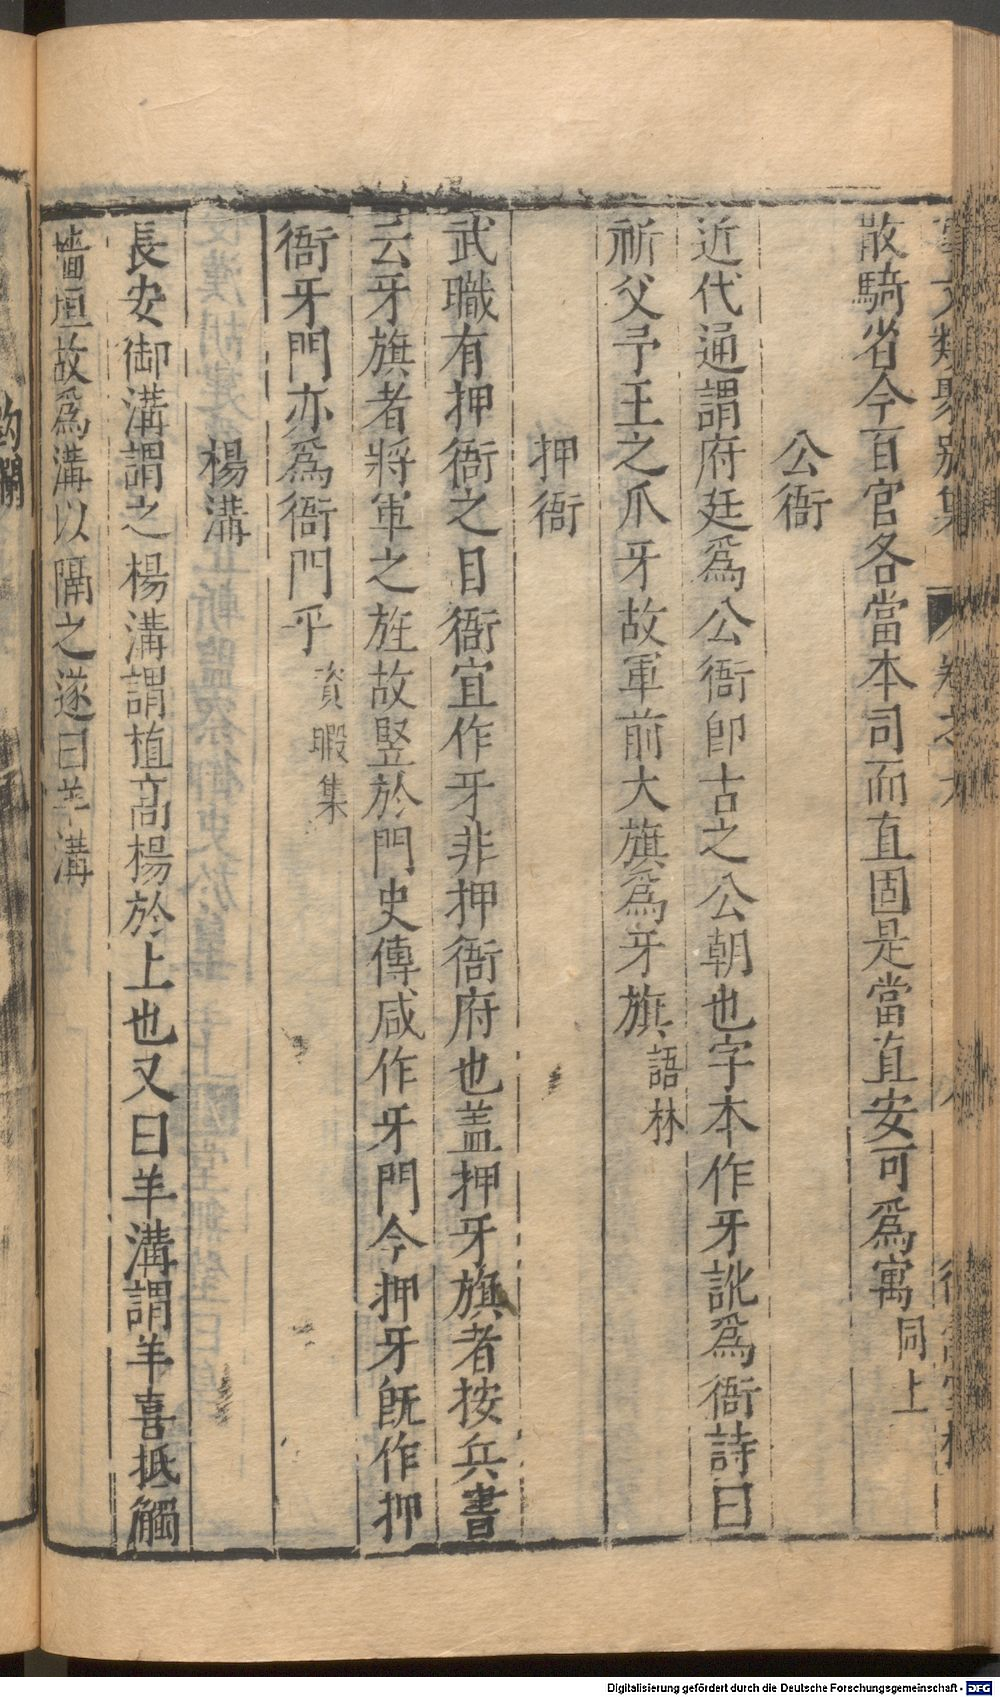 散騎省今百官各當本司而直固是當直安可爲寓同上
公衙
近代通謂府廷爲公衙卽古之公朝也字本作牙訛爲衙詩曰
祈父予王之爪牙故軍前大旗爲牙旗語林
押衙
武職有押衙之目衙宜作牙非押衙府也盖押牙旗者按兵書
云牙旗者將軍之旌故竪於門史傳咸作牙門今押牙旣作押
衙牙門亦爲衙門乎資暇集
楊溝
長安御溝謂之楊溝謂植高楊於上也又曰羊溝謂羊喜抵觸
墻垣故爲溝以隔之遂曰羊溝
Digitalisierung gefördert durch die Deutsche Forschungsgemeinschaft - DFG